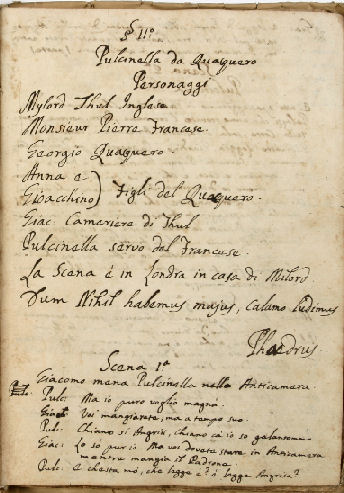 § 11º
Pulcinella da Quacquero
Personaggi
Mylord Thul Inglese
Monsieur Pierre Francese.
Georgio Quacquero.
Anna e
Gioacchino) Figli del Quacquero.
Giac. Cameriere di Thul
Pulcinella servo del Francese.
La Scena è in Londra in casa di Milord
Dum Nihil habemus majus, calamo ludimus
Phaedrus
Scena 1ª
Giacomo mena Pulcinella nella Anticamera.
Pulc: Ma io puro voglio magnà.
Giac: Voi mangiarete, ma a tempo suo.
Pul: Chiano si Angrìs, chiano cà io so galantomo.
Giac: Lo so pur io Ma voi dovete stare in Anticamera
mentre mangia il Padrone.
Pulc: E chesta mò, che legge è? è legge Angrésa?